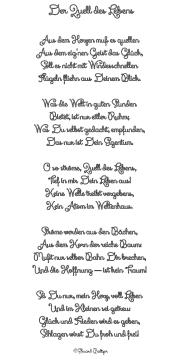 Der Quell des Lebens
Aus dem Herzen muß es quellen
Aus dem eig'nen Geist das Glück,
Soll es nicht mit Windesschnellen
Flügeln fliehn aus Deinem Blick.
Was die Welt in guten Stunden
Bietet, ist nur eitler Ruhm;
Was Du selbst gedacht, empfunden,
Das nur ist Dein Eigentum.
O so ströme, Quell des Lebens,
Tief in mir Dein Leben aus!
Keine Welle treibt vergebens,
Kein Atom im Weltenhaus.
Ströme werden aus den Bächen,
Aus dem Kern der reichs Baum:
Mußt nur selber Bahn Dir brechen,
Und die Hoffnung — ist kein Traum!
Sei Du nur, mein Herz, voll Leben
Und im Kleinen sei getreu:
Glück und Frieden wird es geben,
Schlagen wirst Du froh und frei!